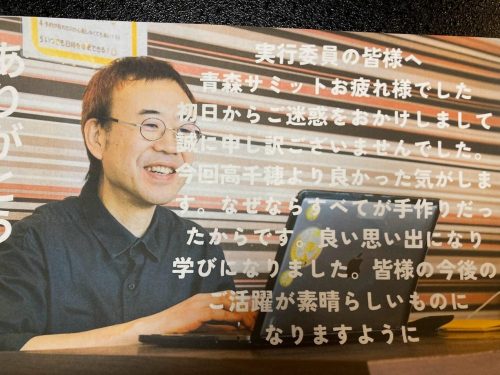 実行委員の皆様へ
青森サミットお疲れ様でした
初日からご迷惑をおかけしまして
誠に申し訳ございませんでした。
今回高千穂より良かった気がしま
す。なぜならすべてが手作りだっ
たからです。良い思い出になり
学びになりました。皆様の今後の
ご活躍が素晴らしいものに
なりますように
ありがとう